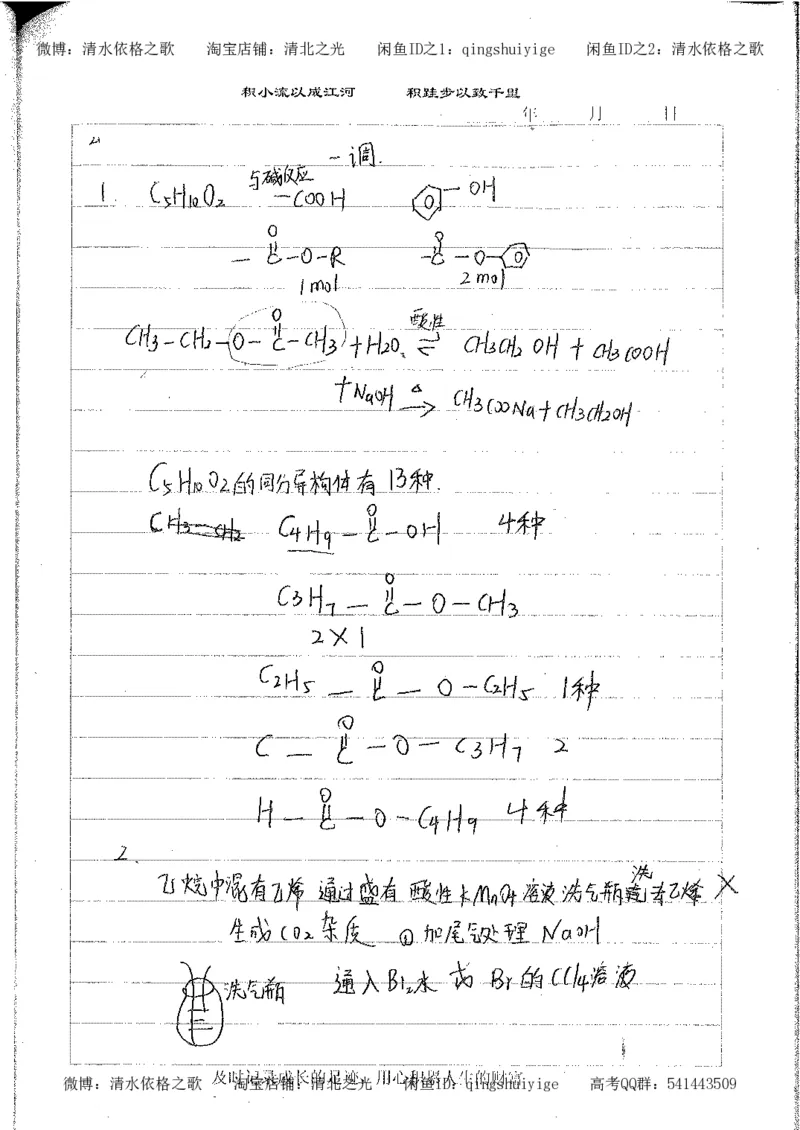 微博：清水依格之歌 淘宝店铺：清北之光 闲鱼ID之1：qingshuiyige 闲鱼ID之2：清水依格之歌
积小流以成江河 积跬步以致千里
年 月 日
一调.
1. C₅H₁₀O₂ 与碱反应 -COOH -OH
O O
- C-O-R -C-O-
1mol 2mol
CH₃-CH₂-O-C(=O)-CH₃ + H₂O 酸性 ⇌ CH₃CH₂OH + CH₃COOH
+NaOH △ → CH₃COONa+CH₃CH₂OH
C₅H₁₀O₂的同分异构体有13种.
C₄H₉-C(=O)-OH 4种
C₃H₇-C(=O)-O-CH₃
2×1
C₂H₅-C(=O)-O-C₂H₅ 1种
C-C(=O)-O-C₃H₇ 2
H-C(=O)-O-C₄H₉ 4种
2.
乙烷中混有乙烯 通过盛有 酸性KMnO₄溶液洗气瓶洗去乙烯 ×
生成CO₂杂质 ① 加尾气处理 NaOH
洗气瓶 通入Br₂水 或 Br的CCl₄溶液
及时记录成长的足迹 用心积累人生的财富
微博：清水依格之歌 淘宝店铺：清北之光 闲鱼ID：qingshuiyige 高考QQ群：541443509